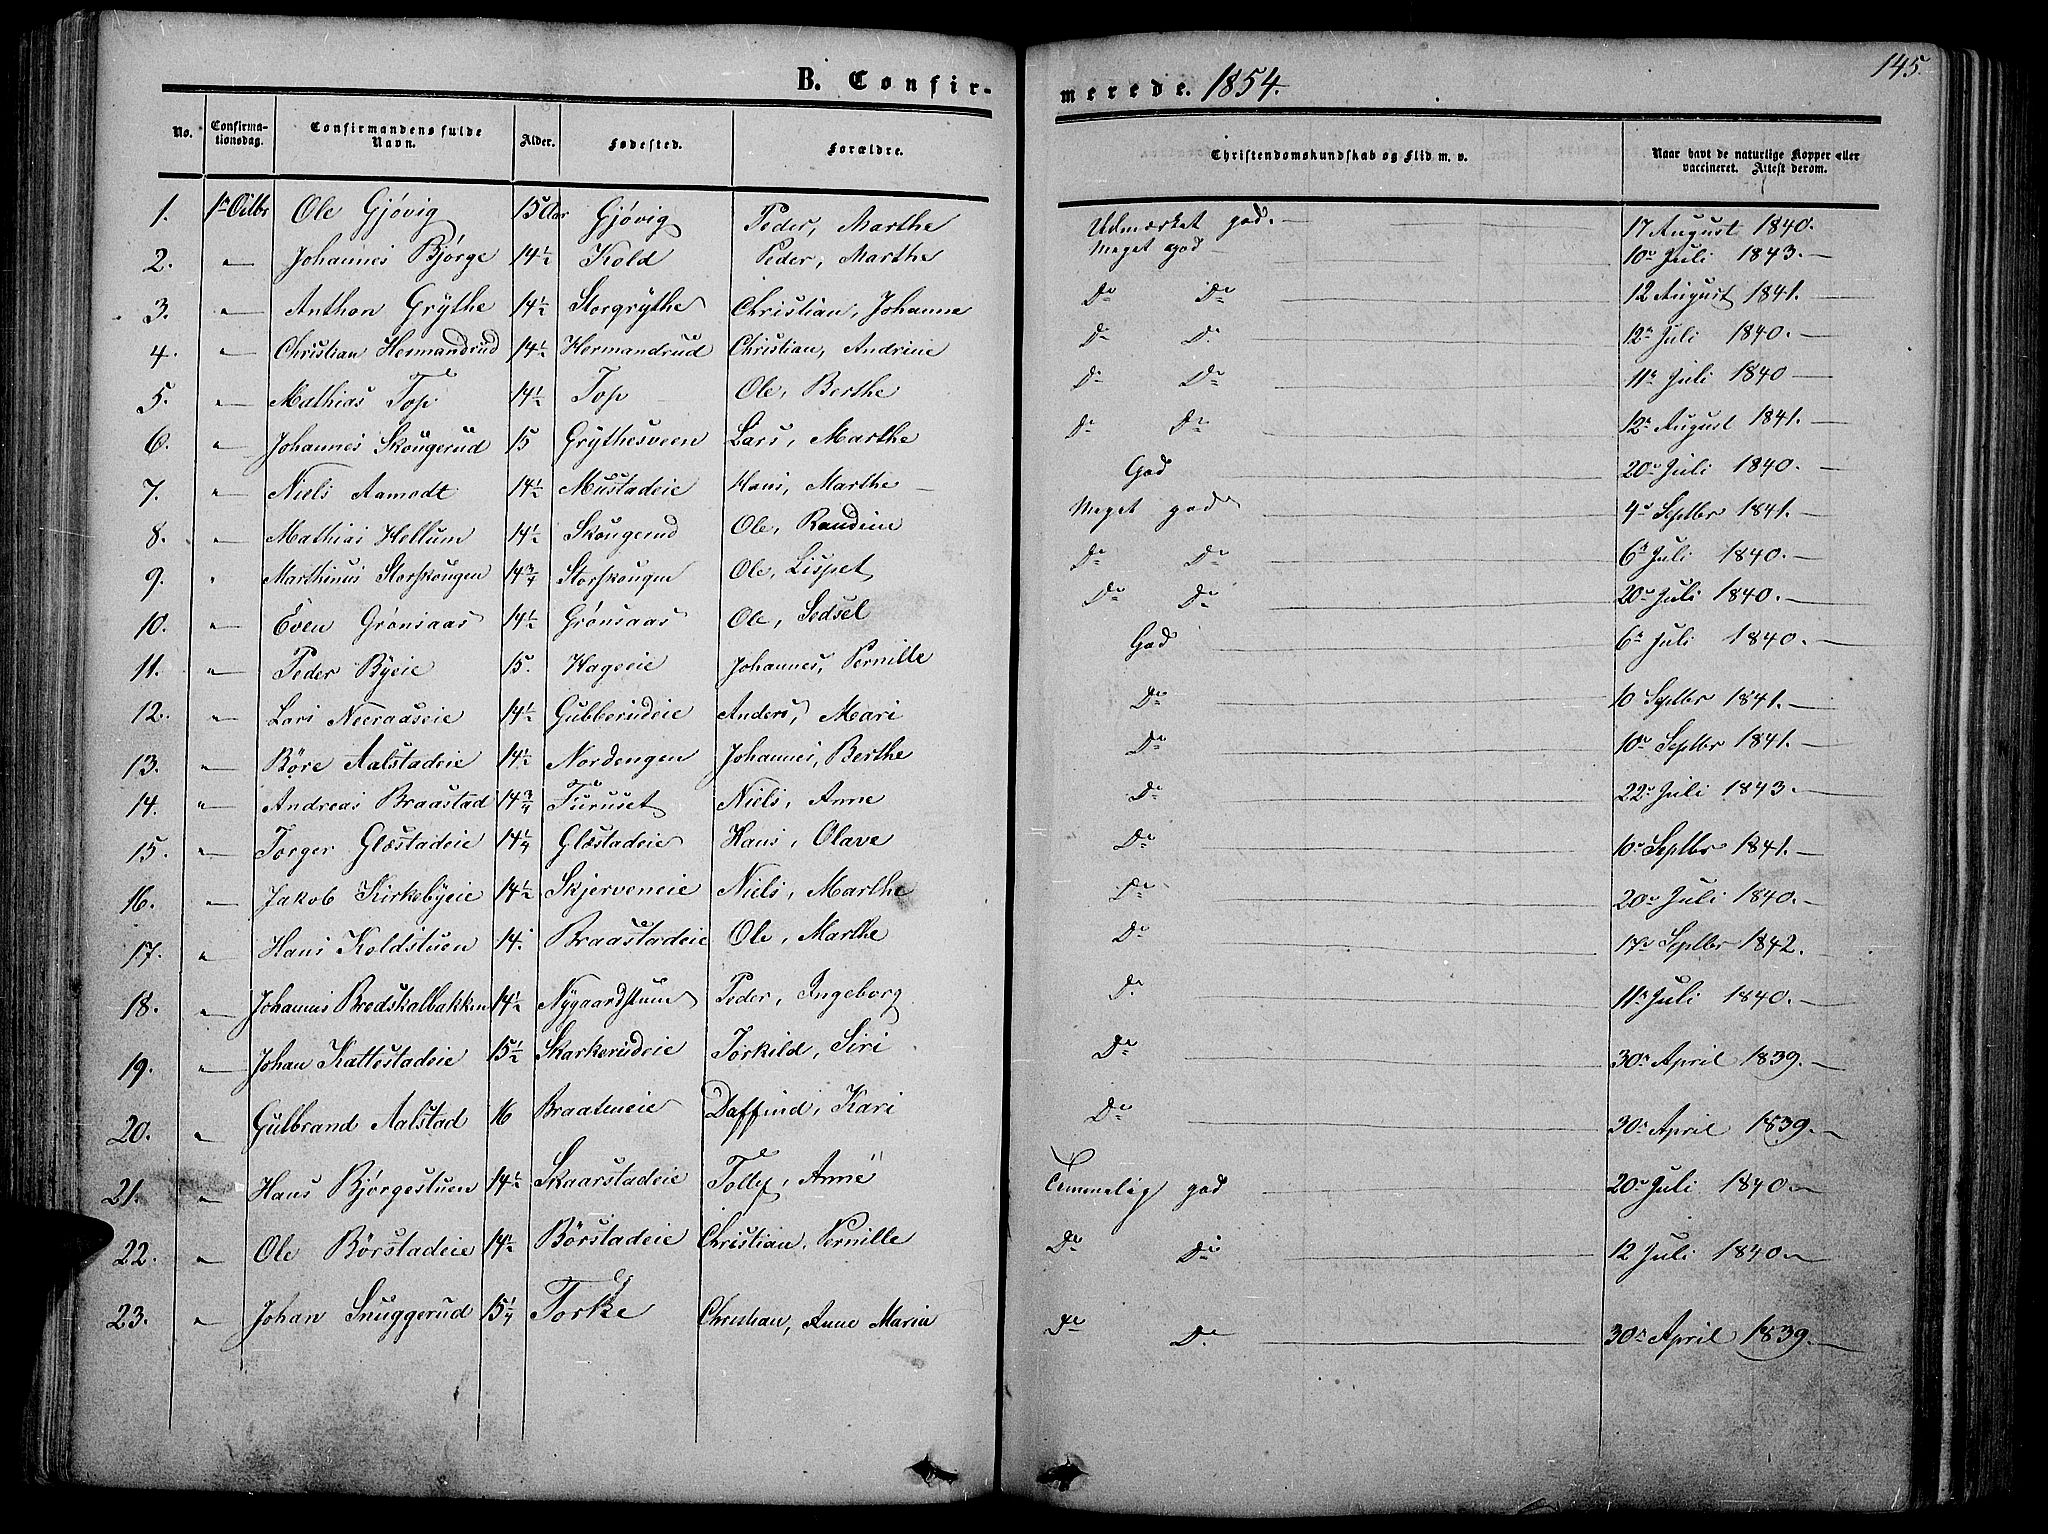 145.
B. Confirmerede. 1854.
No. Confirmationsdag. Confirmandens fulde Navn. Alder. Fødested. Forældre. Christendomskundskab og Flid m. v. Naar havt de naturlige Kopper eller vaccineret. Attest derom.
1. 1e Octbr Ole Gjøvig 15 Aar Gjøvig Peder, Marthe Udmærket god. 17 August 1840.
2. " Johannes Bjørge 14½ Kold Peder, Marthe Meget god 10de Juli 1843.
3. " Anthon Grythe 14½ Storgrythe Christian, Johanne Do Do 12 August 1841.
4. " Christian Hermandrud 14½ Hermandrud Christian, Andrine Do Do 12te Juli 1840.
5. " Mathias Top 14½ Top Ole, Berthe Do Do 11te Juli 1840
6. " Johannes Skougerud 15 Grythesveen Lars, Marthe Do Do 12te August 1841.
7. " Niels Aamodt 14½ Mustadeie Hans, Marthe God 20de Juli 1840.
8. " Mathias Hellum 14½ Skougerud Ole, Randine Meget god 4de Septbr 1841.
9. " Marthinus Storskougen 14¾ Storskougen Ole, Lispet Do Do 6te Juli 1840.
10. " Even Grønsaas 14½ Grønsaas Ole, Sedsel Do Do 20de Juli 1840.
11. " Peder Byeie 15. Hageeie Johannes, Pernille God 6te Juli 1840.
12. " Lars Neeraaseie 14½ Gubberudeie Anders, Mari Do 10 Septbr 1841.
13. " Børe Aalstadeie 14½ Nordengen Johannes, Berthe Do 10de Septbr 1841.
14. " Andreas Braastad 14¾ Furuset Niels, Anne Do 22de Juli 1843.
15. " Torger Glæstadeie 14¼ Glæstadeie Hans, Olave Do 10de Septbr 1841.
16. " Jakob Kirkebyeie 14½ Skjerveneie Niels, Marthe Do 20de Juli 1840.
17. " Hans Koldstuen 14. Braastadeie Ole, Marthe Do 17de Septbr 1842.
18. " Johannes Bredskalbakken 14½ Nygaardstuen Peder, Ingeborg Do 11te Juli 1840.
19. " Johan Kattestadeie 15½ Skarkerudeie Torkild, Siri Do 30te April 1839.
20. " Gulbrand Aalstad 16 Braateneie Daffind, Kari Do 30te April 1839.
21. " Hans Bjørgestuen 14½ Skaarstadeie Tolly, Anne Temmelig god 20de Juli 1840
22. " Ole Børstadeie 14½ Børstadeie Christian, Pernille Do Do 12 Juli 1840
23. " Johan Snuggerud 15¼ Torke Christian, Anne Maria Do Do 30te April 1839.